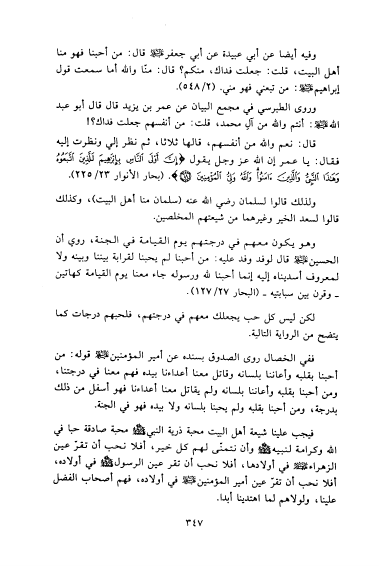 وفيه أيضا عن أبي عبيدة عن أبي جعفر ﵇ قال: من أحبنا فهو منا
أهل البيت، قلت: جعلت فداك، منكم؟ قال: منّا والله أما سمعت قول
إبراهيم ﵇: من تبعني فهو مني. (٥٤٨/٢)
وروى الطبرسي في مجمع البيان عن عمر بن يزيد قال قال أبو عبد
الله ﵇: أنتم والله من آل محمد، قلت: من أنفسهم جعلت فداك؟!
قال: نعم والله من أنفسهم، قالها ثلاثا، ثم نظر إلي ونظرت إليه
فقال: يا عمر إن الله عز وجل يقول ﴿إِنَّ أَوْلَى النَّاسِ بِإِبْرَاهِيمَ لَلَّذِينَ اتَّبَعُوهُ
وَهَٰذَا النَّبِيُّ وَالَّذِينَ ءَامَنُوا وَاللَّهُ وَلِيُّ الْمُؤْمِنِينَ﴾. (بحار الأنوار ٢٢٥/٢٣)
ولذلك قالوا لسلمان رضي الله عنه (سلمان منا أهل البيت)، وكذلك
قالوا لسعد الخير وغيرهما من شيعتهم المخلصين.
وهو يكون معهم في درجتهم يوم القيامة في الجنة، روي أن
الحسين ﵇ قال لوفد وفد عليه: من أحبنا لم يحبنا لقرابة بيننا وبينه ولا
لمعروف أسديناه إليه إنما أحبنا لله ورسوله جاء معنا يوم القيامة كهاتين
ـ وقرن بين سبابتيه ـ (البحار ١٢٧/٢٧).
لكن ليس كل حب يجعلك معهم في درجتهم، فلحبهم درجات كما
يتضح من الرواية التالية.
ففي الخصال روى الصدوق بسنده عن أمير المؤمنين ﵇ قوله: من
أحبنا بقلبه وأعاننا بلسانه وقاتل معنا أعداءنا بيده فهم معنا في درجتنا،
ومن أحبنا بقلبه وأعاننا بلسانه ولم يقاتل معنا أعداءنا فهو أسفل من ذلك
بدرجة، ومن أحبنا بقلبه ولم يحبنا بلسانه ولا بيده فهو في الجنة.
فيجب علينا شيعة أهل البيت محبة ذرية النبي ﷺ محبة صادقة حبا في
الله وكرامة لنبيه ﷺ وأن نتمنّى لهم كل خير، أفلا نحب أن تقرّ عين
الزهراء ﵍ في أولادها، أفلا نحب أن تقر عين الرسول ﷺ في أولاده،
أفلا نحب أن تقرّ عين أمير المؤمنين ﵇ في أولاده، فهم أصحاب الفضل
علينا، ولولاهم لما اهتدينا أبدا.
٣٤٧